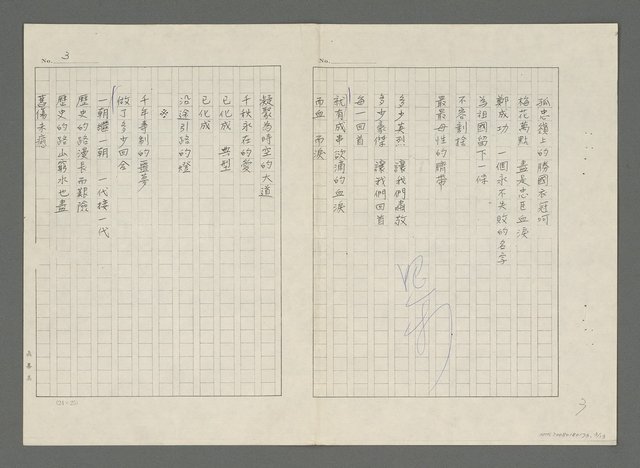 孤忠嶺上的勝國衣冠呵
梅花萬點 盡是忠臣血淚
鄭成功 一個永不失敗的名字
為祖國留下一條
不容割捨
最最母性的臍帶
多少英烈 讓我們
多少豪傑 讓我們回首
每一回首
就有成串欲滴的血淚
而血 而淚
3
凝聚為時空的大道
千秋永在的愛
已化成 典型
已化成
沿途引路的燈
千年專制的噩夢
做了多少回合
一朝繼一朝 一代接一代
歷史的路漫長而艱險
歷史的路山窮水也盡
舊傷未癒
No. 3
No.